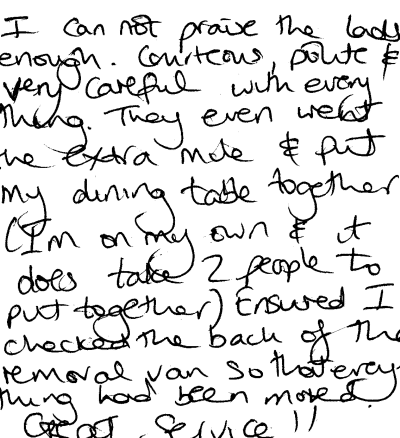 I can not praise the lads
enough. Courteous, polite &
very careful with every
thing. They even went
the extra mile & put
my dining table together
(I'm on my own & it
does take 2 people to
put together) Ensured I
checked the back of the
removal van so that every
thing had been moved.
Great Service!!